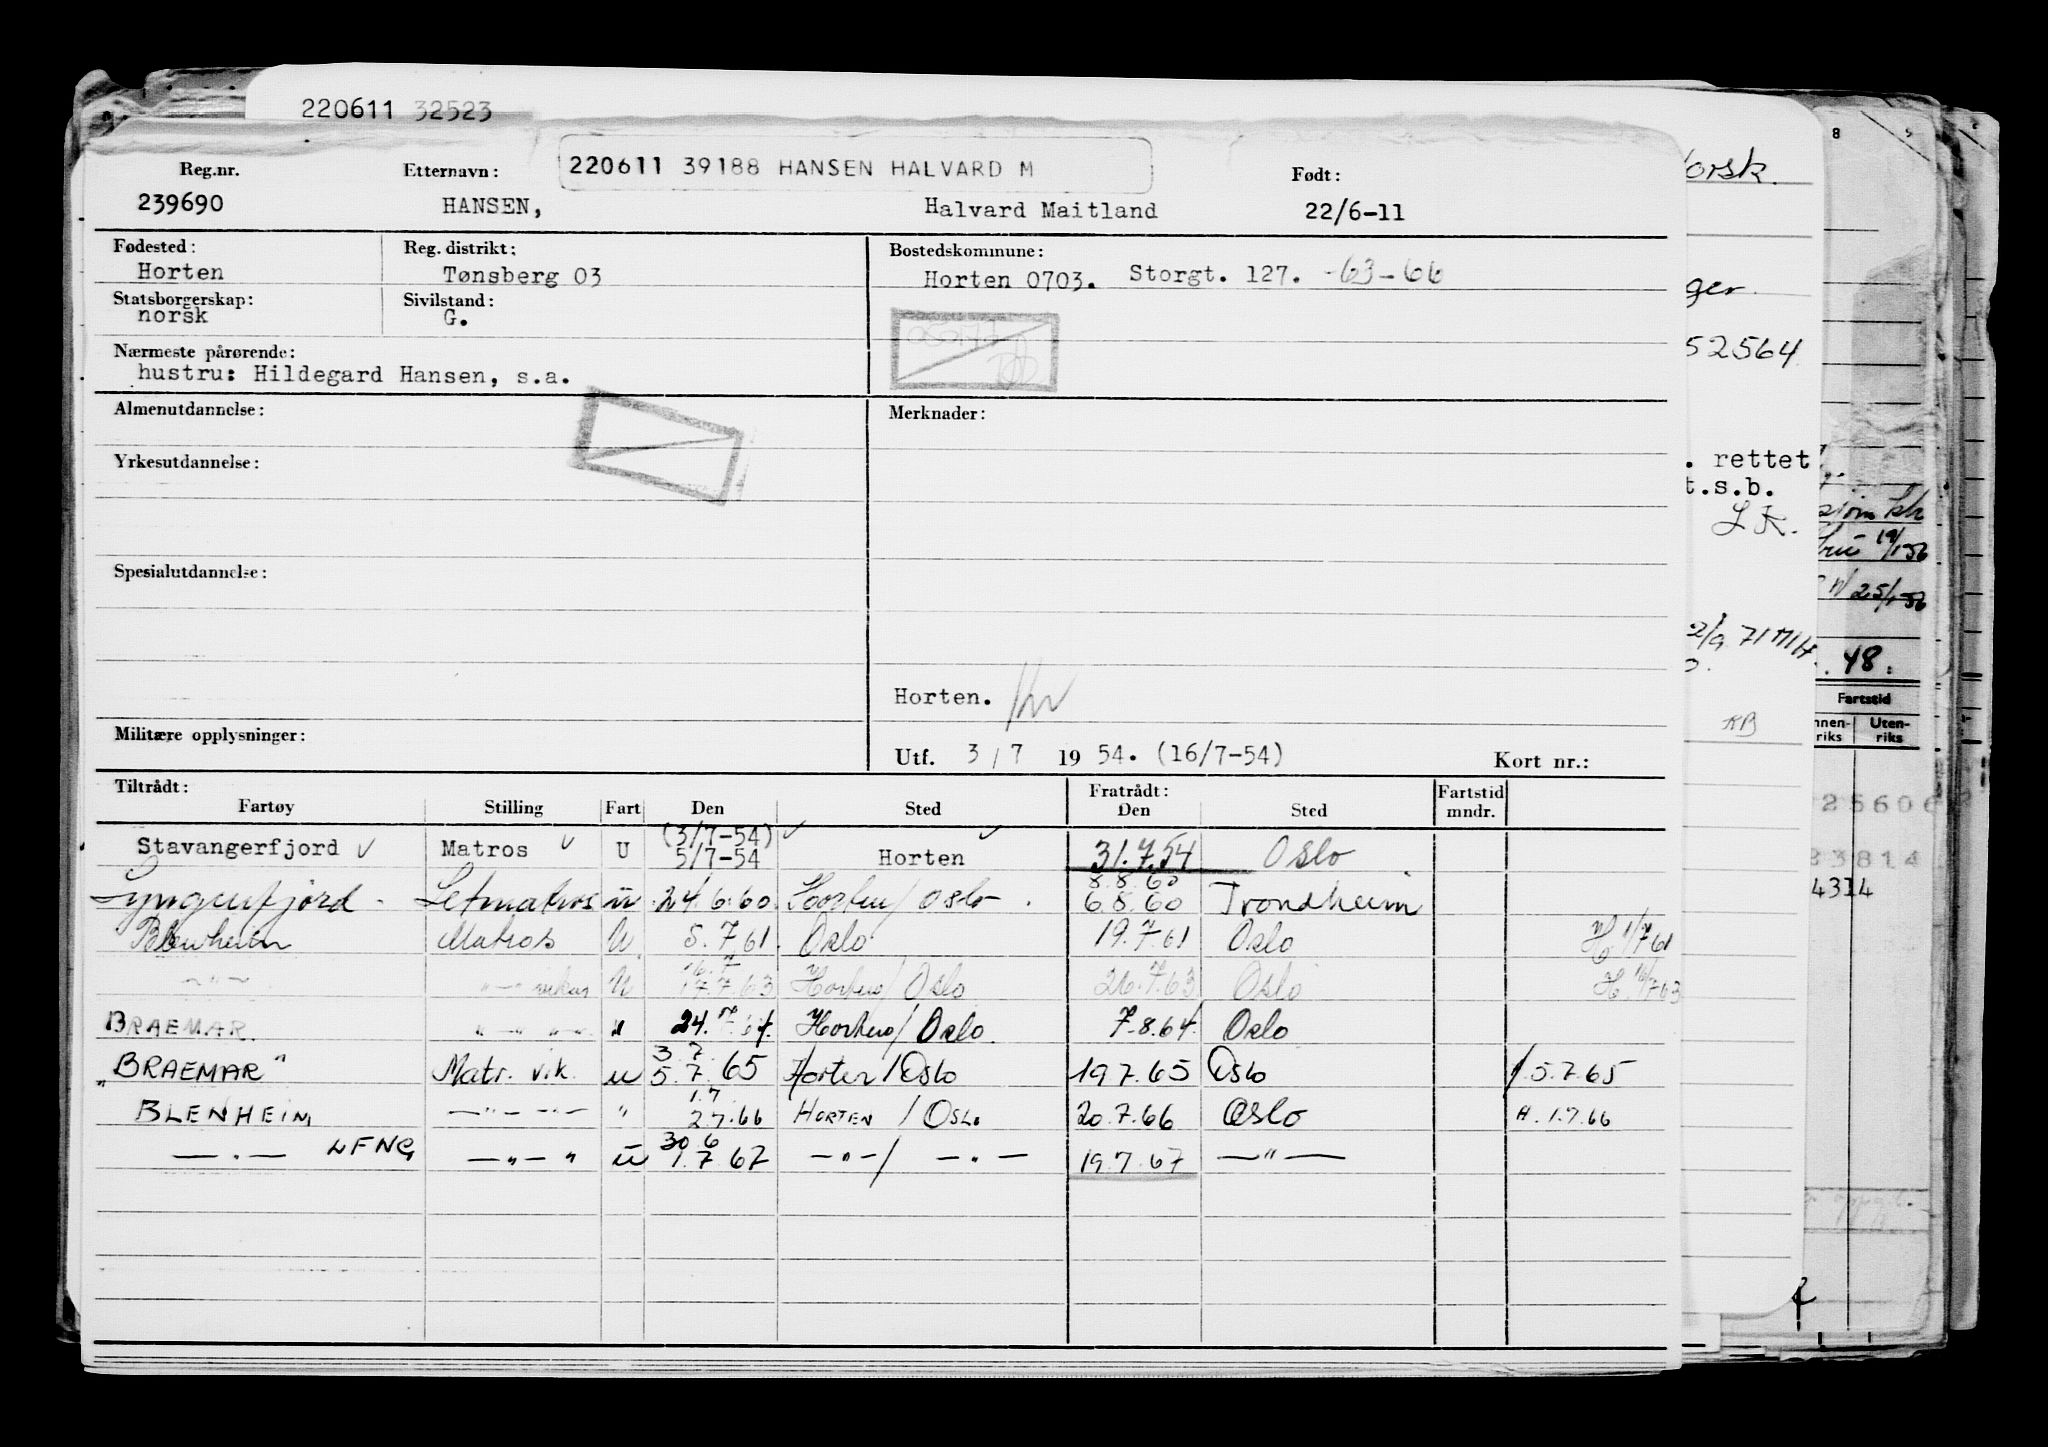 220611 32523
220611 39188 HANSEN HALVARD M
Reg.nr. Etternavn: Født:
239690 HANSEN, Halvard Maitland 22/6-11
Fødested: Reg. distrikt: Bostedskommune:
Horten Tønsberg 03 Horten 0703. Storgt. 127. -63-66
Statsborgerskap: Sivilstand:
norsk G.
Nærmeste pårørende:
hustru: Hildegard Hansen, s.a.
Almenutdannelse: Merknader:
Yrkesutdannelse:
Spesialutdannelse:
Horten.
Militære opplysninger:
Utf. 3/7 1954. (16/7-54) Kort nr.:
Tiltrådt: Fratrådt: Fartstid
Fartøy Stilling Fart Den Sted Den Sted mndr.
(3/7-54)
Stavangerfjord Matros U 5/7-54 Horten 31.7.54 Oslo
8.8.60
Lyngenfjord Letmatros u 24.6.60 Horten/Oslo 6.8.60 Trondheim
Blenheim Matros U 5.7.61. Oslo 19.7.61 Oslo H. 1/7 61
16.7
-"- -"- vikar U 17.7.63 Horten/Oslo 26.7.63 Oslo H. 16/7 63
BRAEMAR. "-" "-" " 24.7.64. Horten/Oslo. 7.8.64. Oslo
3.7.
"BRAEMAR" Matr. vik. u 5.7.65 Horten/Oslo 19.7.65 Oslo 5.7.65
1.7
BLENHEIM -"- -"- " 2.7.66 HORTEN/OSLO 20.7.66 Oslo H. 1.7.66
30 6
-"- LFNG -"- " u 1.7.67 -"-/ -"- 19.7.67 -"-
orsk.
ger
52564
. rettet
t.s.b.
L K.
2/9 71 MH
KB
8
19/1-56
25/1-56
. 48:
Fartstid
nnen- Uten-
riks riks
25606
33814
4314